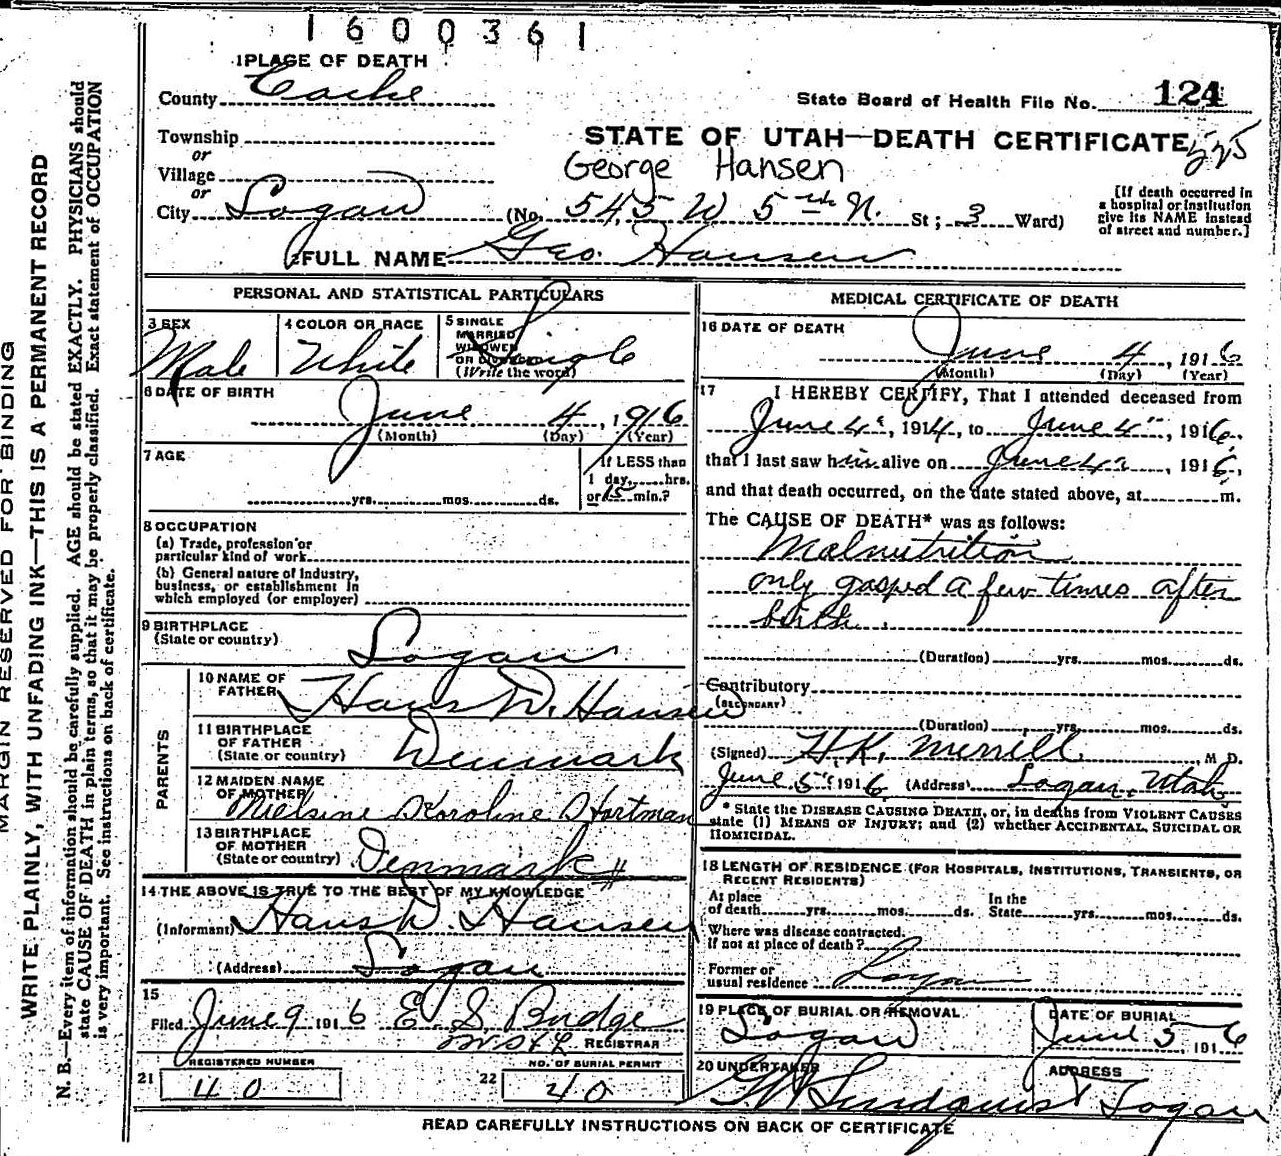 1600361
1 PLACE OF DEATH
County Cache
State Board of Health File No. 124
Township
or
STATE OF UTAH—DEATH CERTIFICATE
Village
George Hansen
or
City Logan (No. 545 W 5th N. St; 3 Ward)
[If death occurred in
a hospital or institution
give its NAME instead
of street and number.]
FULL NAME Geo. Hansen
PERSONAL AND STATISTICAL PARTICULARS
3 SEX
Male
4 COLOR OR RACE
White
5 SINGLE
MARRIED
WIDOWED
OR DIVORCED
(Write the word)
Single
6 DATE OF BIRTH
June 4, 1916
(Month) (Day) (Year)
7 AGE
yrs. mos. ds.
If LESS than
1 day, hrs.
or 15 min.?
8 OCCUPATION
(a) Trade, profession or
particular kind of work
(b) General nature of industry,
business, or establishment in
which employed (or employer)
9 BIRTHPLACE
(State or country)
Logan
PARENTS
10 NAME OF
FATHER
Hans D. Hansen
11 BIRTHPLACE
OF FATHER
(State or country)
Denmark
12 MAIDEN NAME
OF MOTHER
Nielsine Karoline Hartman
13 BIRTHPLACE
OF MOTHER
(State or country)
Denmark
14 THE ABOVE IS TRUE TO THE BEST OF MY KNOWLEDGE
(Informant) Hans D. Hansen
(Address) Logan
15
Filed June 9 1916 E. S. Budge
REGISTRAR
REGISTERED NUMBER
21 40
NO. OF BURIAL PERMIT
22 40
MEDICAL CERTIFICATE OF DEATH
16 DATE OF DEATH
June 4, 1916
(Month) (Day) (Year)
17 I HEREBY CERTIFY, That I attended deceased from
June 4", 1914, to June 4", 1916,
that I last saw him alive on June 4", 1916,
and that death occurred, on the date stated above, at m.
The CAUSE OF DEATH* was as follows:
Malnutrition
only gasped a few times after
birth.
(Duration) yrs. mos. ds.
Contributory
(SECONDARY)
(Duration) yrs. mos. ds.
(Signed) H. K. Merrill, M D.
June 5", 1916 (Address) Logan, Utah
* State the DISEASE CAUSING DEATH, or, in deaths from VIOLENT CAUSES
state (1) MEANS OF INJURY; and (2) whether ACCIDENTAL, SUICIDAL OR
HOMICIDAL.
18 LENGTH OF RESIDENCE (FOR HOSPITALS, INSTITUTIONS, TRANSIENTS, OR
RECENT RESIDENTS)
At place
of death yrs. mos. ds.
In the
State yrs. mos. ds.
Where was disease contracted.
If not at place of death?
Former or
usual residence Logan
19 PLACE OF BURIAL OR REMOVAL
Logan
DATE OF BURIAL
June 5, 1916
20 UNDERTAKER
Lindquist
ADDRESS
Logan
READ CAREFULLY INSTRUCTIONS ON BACK OF CERTIFICATE
MARGIN RESERVED FOR BINDING
WRITE PLAINLY, WITH UNFADING INK—THIS IS A PERMANENT RECORD
N. B.—Every item of information should be carefully supplied. AGE should be stated EXACTLY. PHYSICIANS should
state CAUSE OF DEATH in plain terms, so that it may be properly classified. Exact statement of OCCUPATION
is very important. See instructions on back of certificate.